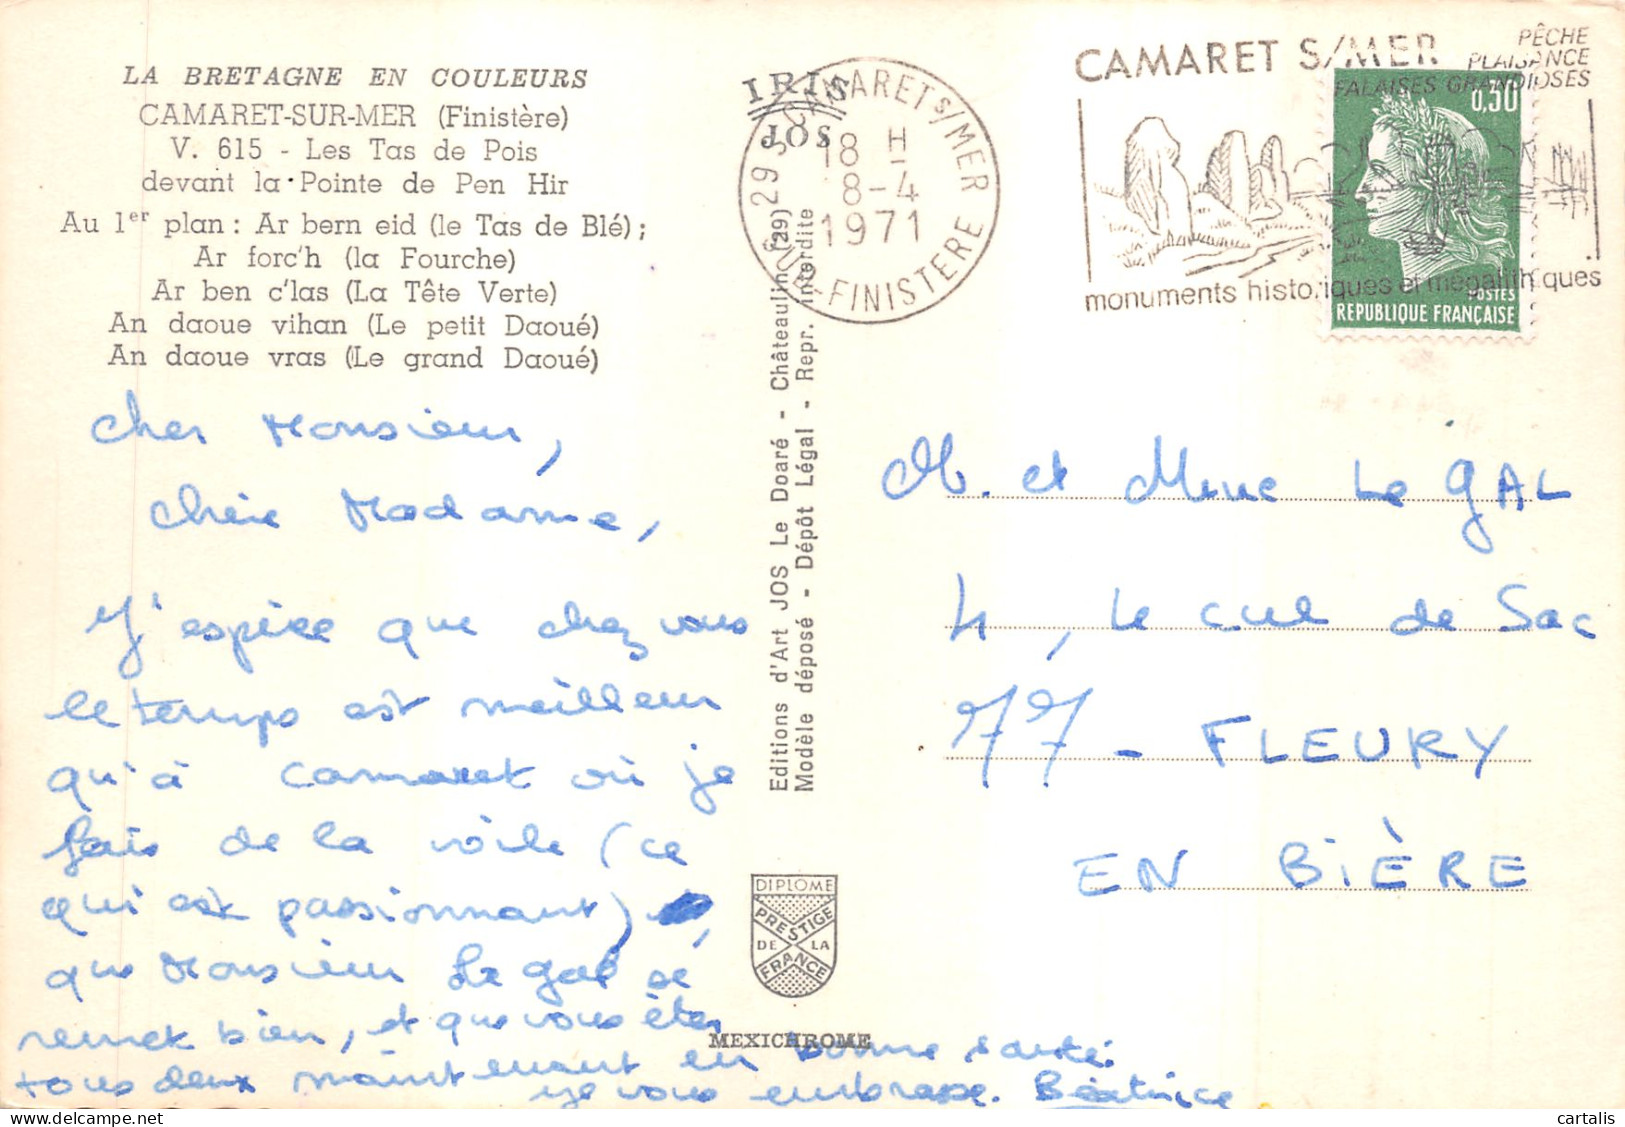 LA BRETAGNE EN COULEURS
CAMARET-SUR-MER (Finistère)
V. 615 - Les Tas de Pois
devant la Pointe de Pen Hir
Au 1er plan : Ar bern eid (le Tas de Blé) ;
Ar forc'h (la Fourche)
Ar ben c'las (La Tête Verte)
An daoue vihan (Le petit Daoué)
An daoue vras (Le grand Daoué)
cher Monsieur,
chère Madame,
J'espère que chez vous
le temps est meilleur
qu'à camaret où je
fais de la voile (ce
qui est passionnant),
que Monsieur Le gal se
remet bien, et que vous êtes
tous deux maintenant en bonne santé.
je vous embrasse. Béatrice
IRIS
JOS
Editions d'Art JOS Le Doaré - Châteaulin (29)
Modèle déposé - Dépôt Légal - Repr. interdite
DIPLOME
PRESTIGE
DE LA
FRANCE
MEXICHROME
29 S CAMARET S/MER
18 H
8-4
1971
SUD-FINISTERE
CAMARET S/MER
PÊCHE
PLAISANCE
FALAISES GRANDIOSES
monuments historiques et mégalithiques
0,30
POSTES
REPUBLIQUE FRANÇAISE
M. et Mme Le GAL
4, Le cul de Sac
77 - FLEURY
EN BIÈRE
cartalis